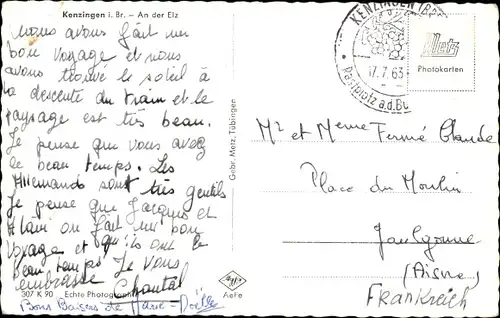 Kenzingen i. Br. – An der Elz
nous avons fait un
bon voyage et nous
avons trouvé le soleil à
la descente du train et le
paysage est très beau.
Je pense que vous avez
le beau temps. Les
Allemands sont très gentils
Je pense que Jacques et
Alain on fait un bon
voyage et qu'ils ont le
beau temps Je vous
embrasse Chantal
307 K 90 Echte Photographie
Bons Baisers de Marie-Noëlle
Gebr. Metz, Tübingen
Agfa
AeFe
KENZINGEN
17.7.63
Rastplatz a.d.
Metz
Photokarten
Mr et Mme Fermé Claude
Place du Moulin
Jaulgonne
(Aisne)
Frankreich